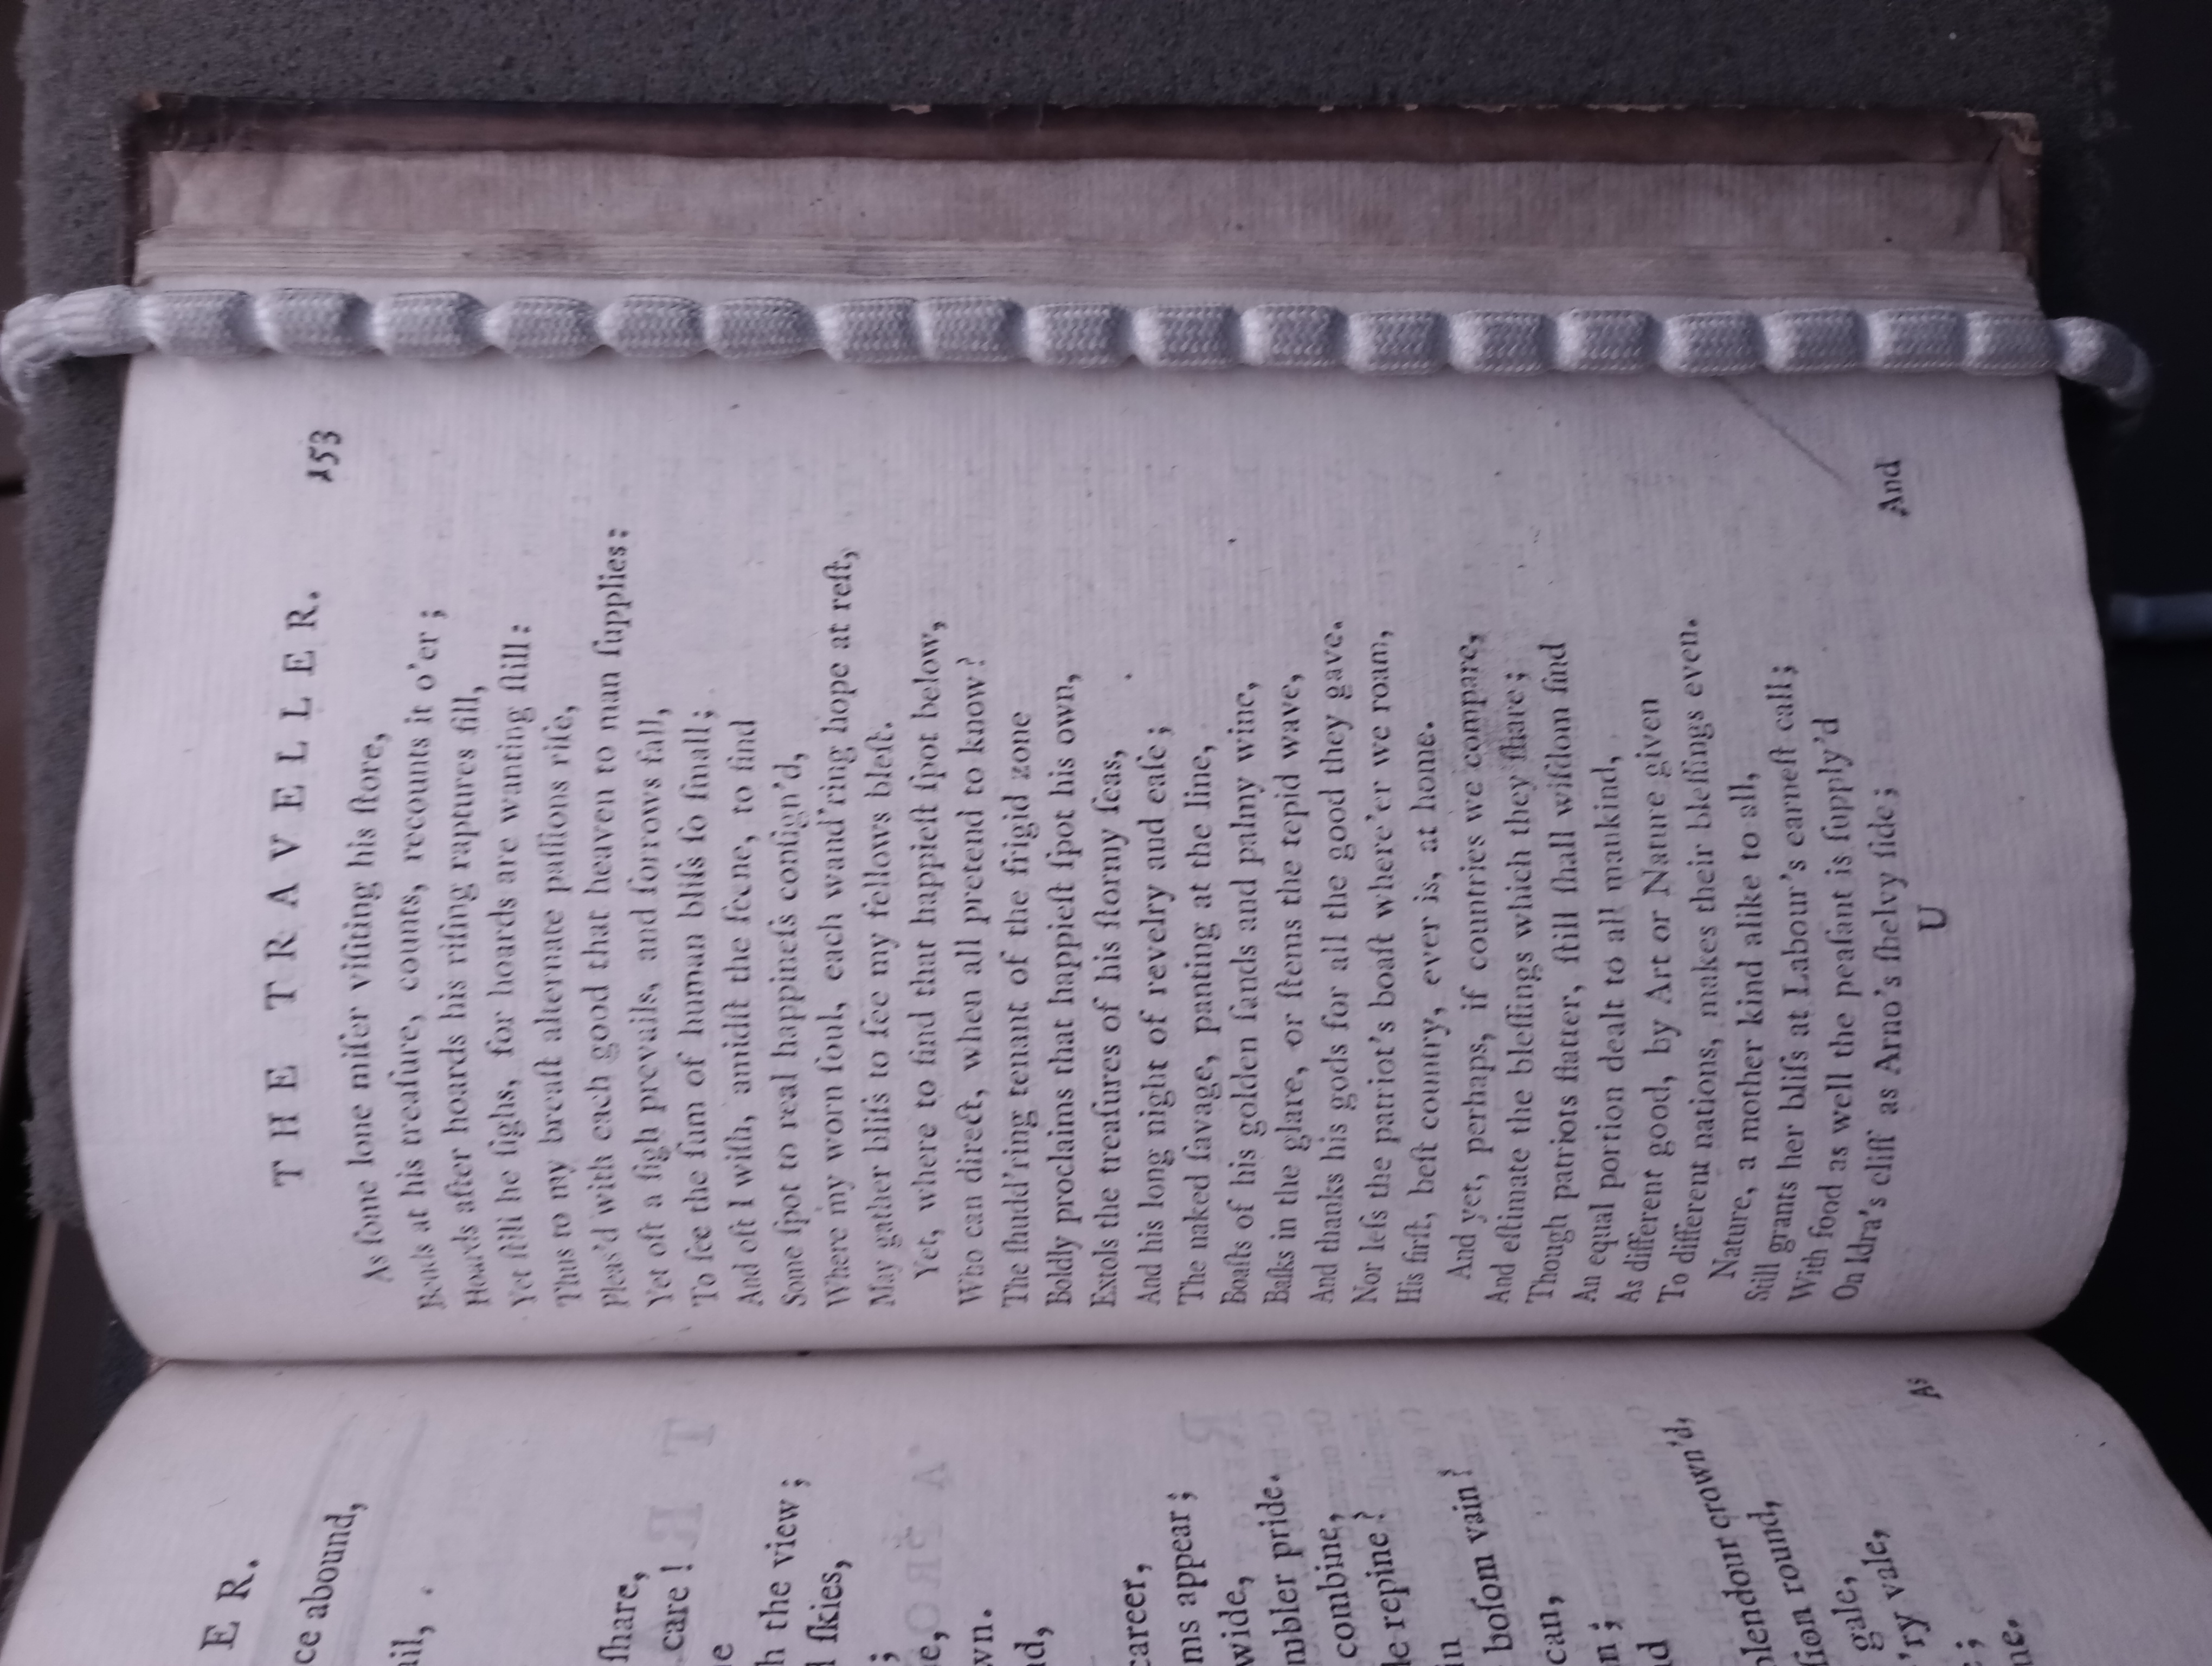 E R.
ce abound,
ail,
ſhare,
care!
h the view;
ſkies,
wn.
career,
ms appear;
wide,
mbler pride.
combine,
repine?
in
boſom vain?
can,
lendour crown'd,
ſion round,
gale,
'ry vale,
As
THE TRAVELLER. 153
As ſome lone miſer viſiting his ſtore,
Bends at his treaſure, counts, recounts it o'er;
Hoards after hoards his riſing raptures fill,
Yet ſtill he ſighs, for hoards are wanting ſtill:
Thus to my breaſt alternate paſſions riſe,
Pleas'd with each good that heaven to man ſupplies:
Yet oft a ſigh prevails, and ſorrows fall,
To ſee the ſum of human bliſs ſo ſmall;
And oft I wiſh, amidſt the ſcene, to find
Some ſpot to real happineſs conſign'd,
Where my worn ſoul, each wand'ring hope at reſt,
May gather bliſs to ſee my fellows bleſt.
Yet, where to find that happieſt ſpot below,
Who can direct, when all pretend to know?
The ſhudd'ring tenant of the frigid zone
Boldly proclaims that happieſt ſpot his own,
Extols the treaſures of his ſtormy ſeas,
And his long night of revelry and eaſe;
The naked ſavage, panting at the line,
Boaſts of his golden ſands and palmy wine,
Baſks in the glare, or ſtems the tepid wave,
And thanks his gods for all the good they gave.
Nor leſs the patriot's boaſt where'er we roam,
His firſt, beſt country, ever is, at home.
And yet, perhaps, if countries we compare,
And eſtimate the bleſſings which they ſhare;
Though patriots flatter, ſtill ſhall wiſdom find
An equal portion dealt to all mankind,
As different good, by Art or Nature given
To different nations, makes their bleſſings even.
Nature, a mother kind alike to all,
Still grants her bliſs at Labour's earneſt call;
With food as well the peaſant is ſupply'd
On Idra's cliff as Arno's ſhelvy ſide;
U
And